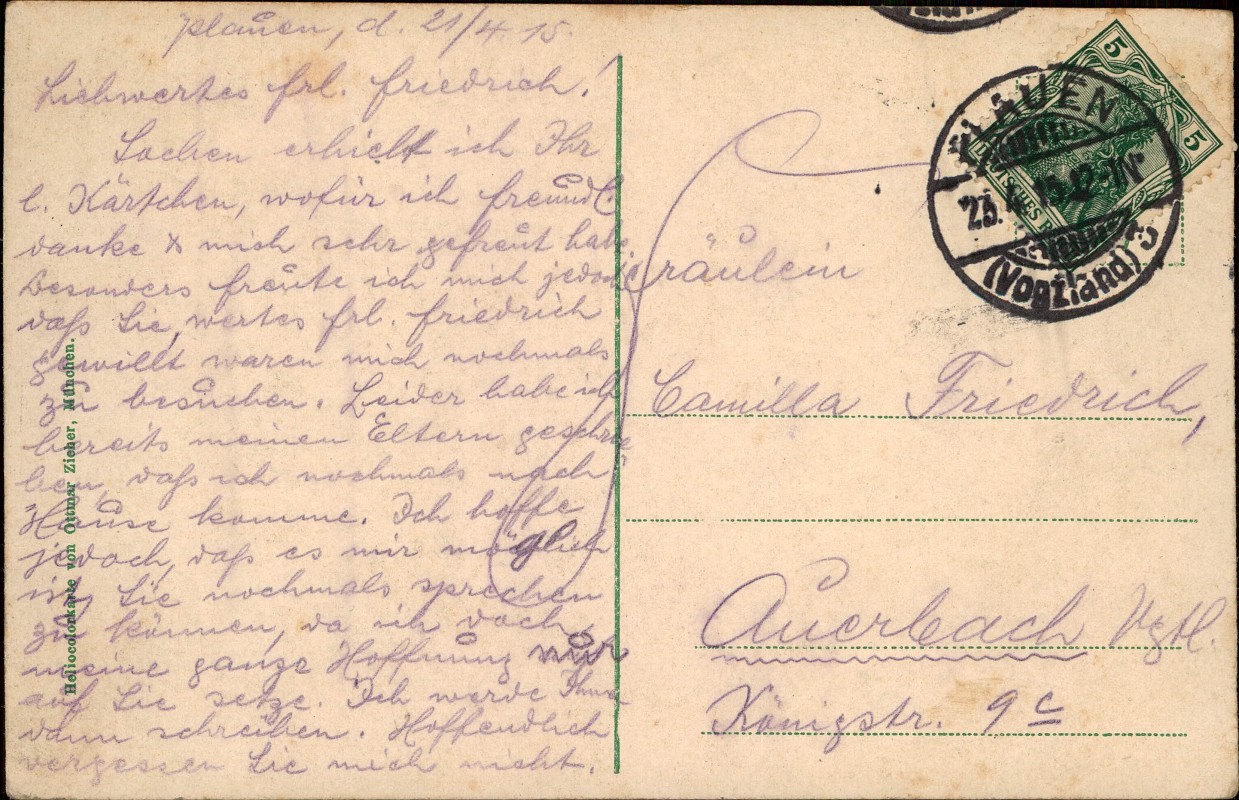 Plauen, d. 21/4.15.
Liebwertes Frl. Friedrich!
Soeben erhielt ich Ihr
l. Kärtchen, wofür ich freundl.
danke & mich sehr gefreut habe.
Besonders freute ich mich jedoch,
daß Sie, wertes Frl. Friedrich
gewillt waren mich nochmals
zu besuchen. Leider habe ich
bereits meinen Eltern geschrie
ben, daß ich nochmals nach
Hause komme. Ich hoffe
jedoch, daß es mir möglich
ist, Sie nochmals sprechen
zu können, da ich doch
meine ganze Hoffnung nur
auf Sie setze. Ich werde Ihnen
dann schreiben. Hoffendlich
vergessen Sie mich nicht.
Heliocolorkarte von Ottmar Zieher, München.
5
5
DEUTSCHES REICH
PLAUEN
23.4.15.
(Vogtland)
Fräulein
Camilla Friedrich,
Auerbach Vgtl.
Königstr. 9c